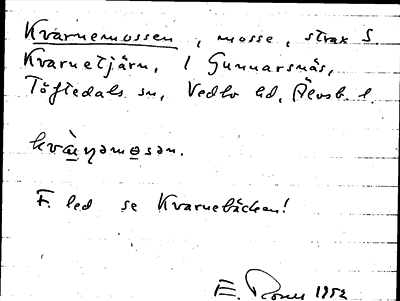 Kvarnemossen, mosse, strax S
Kvarnetjärn, 1 Gunnarsnäs,
Töftedals sn, Vedbo hd, Älvsb. l.
kvàɳəmosən.
F. led se Kvarnebäcken!
E. 1952